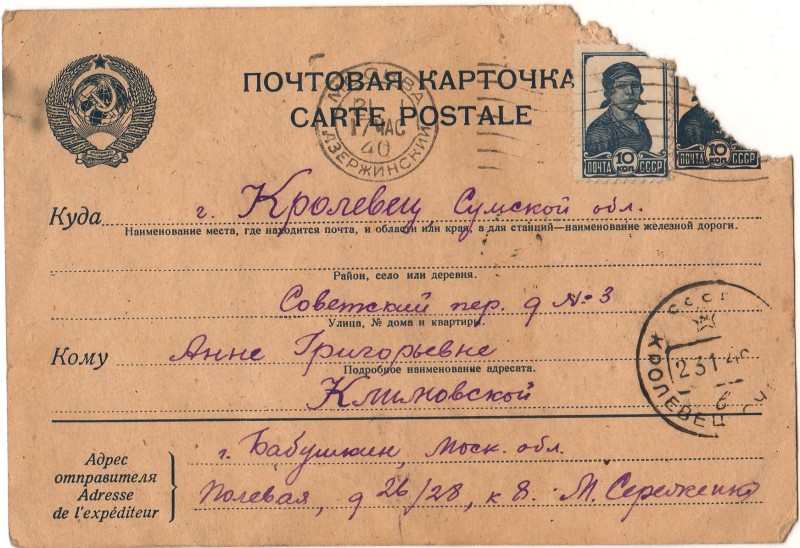 ПОЧТОВАЯ КАРТОЧКА
CARTE POSTALE
МОСКВА
21 1
17 ЧАС
40
ДЗЕРЖИНСКИЙ
ПОЧТА 10 КОП СССР
ПОЧТА 10 КОП СССР
Куда г. Кролевец, Сумской обл.
Наименование места, где находится почта, и области или края, а для станций—наименование железной дороги.
Район, село или деревня.
Советский пер. д №3
Улица, № дома и квартиры.
Кому Анне Григорьевне
Подробное наименование адресата.
Климовской
СССР
23 1 40
6
КРОЛЕВЕЦ
Адрес
отправителя
Adresse
de l'expéditeur
г. Бабушкин, Моск. обл.
Полевая, д 26/28, к 8. М.